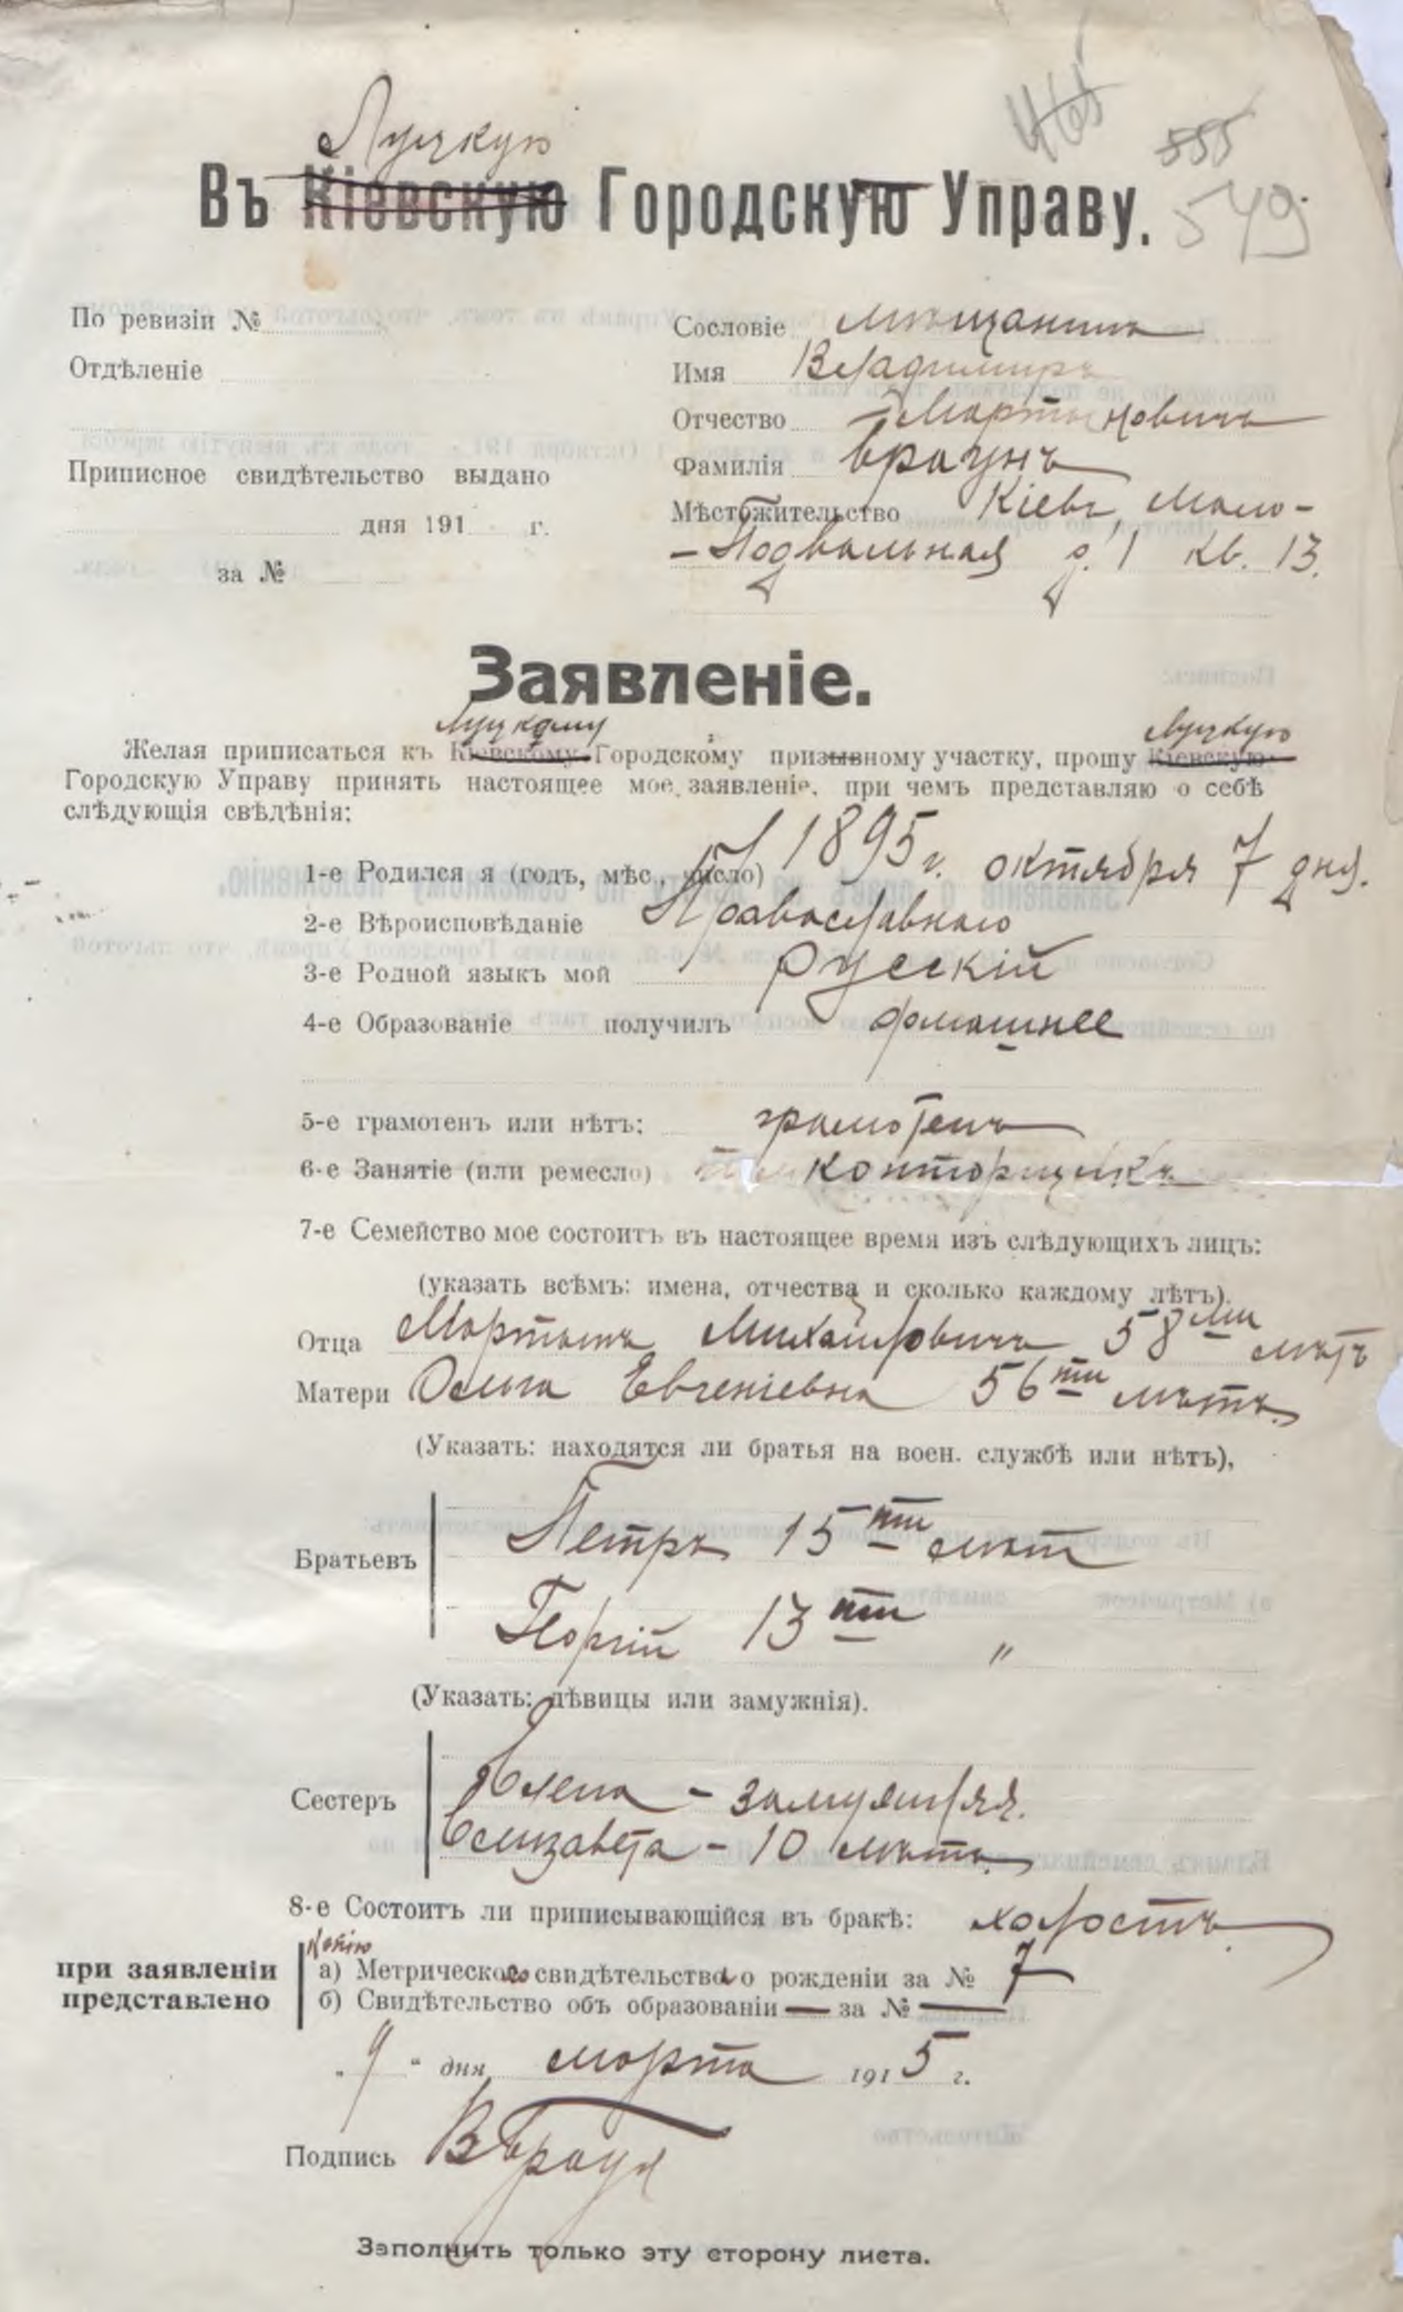 465
555
549
Луцкую
Въ Кіевскую Городскую Управу.
По ревизіи №
Отдѣленіе
Приписное свидѣтельство выдано
дня 191 г.
за №
Сословіе мѣщанинъ
Имя Владимиръ
Отчество Мартыновичъ
Фамилія Браунъ
Мѣстожительство Кіевъ, Мало-
-Подвальная д. 1 кв. 13.
Заявленіе.
Луцкому Луцкую
Желая приписаться къ Кіевскому Городскому призывному участку, прошу Кіевскую
Городскую Управу принять настоящее мое заявленіе, при чемъ представляю о себѣ
слѣдующія свѣдѣнія:
1-е Родился я (годъ, мѣс., число) 1895 г. октября 7 дня.
2-е Вѣроисповѣданіе Православнаго
3-е Родной языкъ мой Русскій
4-е Образованіе получилъ домашнее
5-е грамотенъ или нѣтъ: грамотенъ
6-е Занятіе (или ремесло) конторщикъ
7-е Семейство мое состоитъ въ настоящее время изъ слѣдующихъ лицъ:
(указать всѣмъ: имена, отчества и сколько каждому лѣтъ).
Отца Мартынъ Михайловичъ 58 ми лѣтъ
Матери Ольга Евгеніевна 56 ти лѣтъ
(Указать: находятся ли братья на воен. службѣ или нѣтъ),
Братьевъ
Петръ 15 ти лѣт
Георгій 13 ти "
(Указать: дѣвицы или замужнія).
Сестеръ
Елена - замужняя.
Елизавета - 10 лѣтъ
8-е Состоитъ ли приписывающійся въ бракѣ: холостъ
при заявленіи
представлено
Копію
а) Метрическаго свидѣтельства о рожденіи за № 7
б) Свидѣтельство объ образованіи — за № —
"9" дня марта 1915 г.
Подпись ВБраун
Заполнить только эту сторону листа.